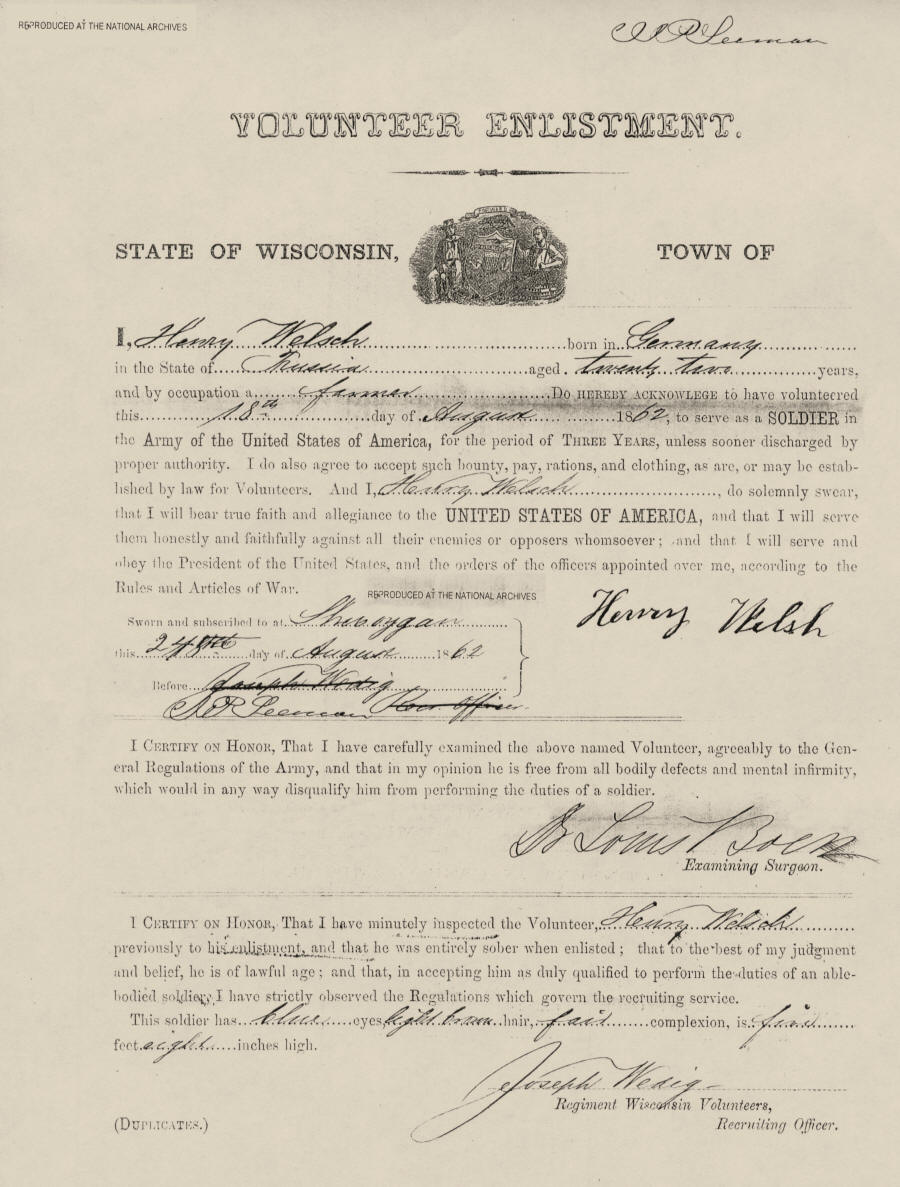 REPRODUCED AT THE NATIONAL ARCHIVES
Seeman
VOLUNTEER ENLISTMENT.
FORWARD
STATE OF WISCONSIN, TOWN OF
I, Henry Welsch born in Germany
in the State of Prussia aged twenty two years,
and by occupation a farmer DO HEREBY ACKNOWLEGE to have volunteered
this 18th day of August 1862, to serve as a SOLDIER in
the Army of the United States of America, for the period of THREE YEARS, unless sooner discharged by
proper authority. I do also agree to accept such bounty, pay, rations, and clothing, as are, or may be estab-
lished by law for Volunteers. And I, Henry Welsch, do solemnly swear,
that I will bear true faith and allegiance to the UNITED STATES OF AMERICA, and that I will serve
them honestly and faithfully against all their enemies or opposers whomsoever; and that I will serve and
obey the President of the United States, and the orders of the officers appointed over me, according to the
Rules and Articles of War.
REPRODUCED AT THE NATIONAL ARCHIVES
Henry Welsh
Sworn and subscribed to at Sheboygan
this 24 day of August 1862
Before Joseph Wedig
Seeman Officer
I CERTIFY ON HONOR, That I have carefully examined the above named Volunteer, agreeably to the Gen-
eral Regulations of the Army, and that in my opinion he is free from all bodily defects and mental infirmity,
which would in any way disqualify him from performing the duties of a soldier.
Dr Louis Bock
Examining Surgeon.
I CERTIFY ON HONOR, That I have minutely inspected the Volunteer, Henry Welsch
previously to his enlistment, and that he was entirely sober when enlisted; that to the best of my judgment
and belief, he is of lawful age; and that, in accepting him as duly qualified to perform the duties of an able-
bodied soldier, I have strictly observed the Regulations which govern the recruiting service.
This soldier has blue eyes, light brown hair, fair complexion, is five
feet eight inches high.
Joseph Wedig
Regiment Wisconsin Volunteers,
(DUPLICATES.) Recruiting Officer.